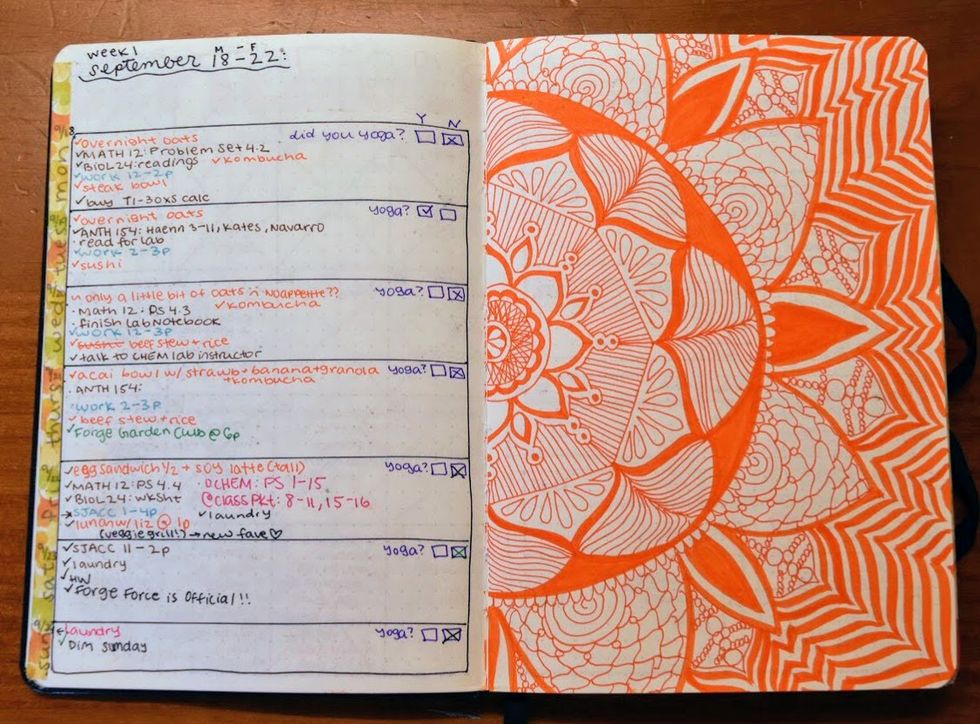 week 1 M - F
september 18-22:
Y N
did you yoga?
✓overnight oats
✓MATH 12: Problem Set 4.2
✓BIOL 24: readings ✓kombucha
✓work 12-2p
✓steak bowl
✓buy TI-30xs calc
mon 9/18
✓overnight oats yoga?
✓ANTH 154: Haenn 3-11, Kates, Navarro
· read for lab
✓work 2-3p
✓sushi
tues
~ only a little bit of oats :( NO APPETITE?? yoga?
· Math 12: PS 4.3 ✓kombucha
· finish lab notebook
✓work 12-3p
✓sushi beef stew + rice
✓talk to CHEM lab instructor
wed
✓acai bowl w/ strawb + banana + granola yoga?
+kombucha
· ANTH 154:
·work 2-3p
✓beef stew + rice
✓Forge Garden Club @ 6p
thurs
✓egg sandwich 1/2 + soy latte (tall) yoga?
✓MATH 12: PS 4.4 · OCHEM: PS 1-15
✓BIOL 24: wksht @ClassPkt: 8-11, 15-16
→SJACC 1-4p ✓laundry
✓lunch w/ liz @ 1p
(veggie grill!) → new fave ♡
fri
✓SJACC 11-2p yoga?
✓laundry
✓HW
✓Forge Force is Official!!
sat
←laundry yoga?
✓Dim Sunday
sun